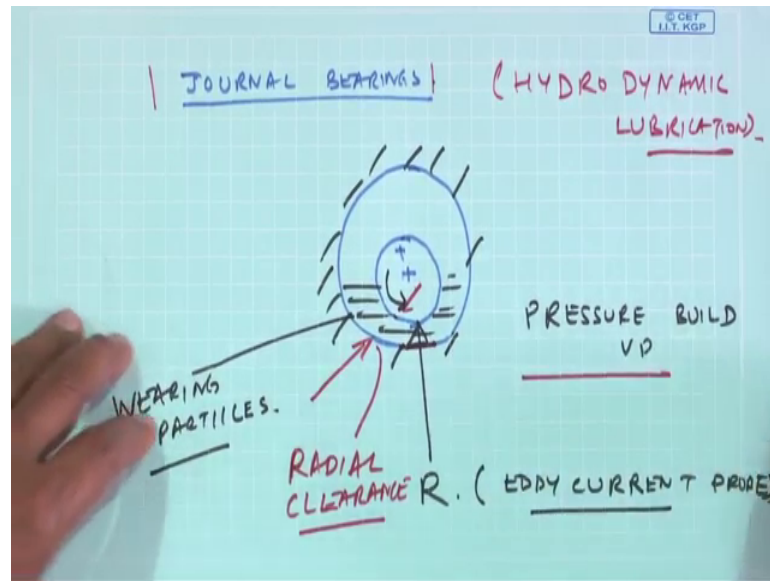 © CET
I.I.T. KGP
JOURNAL BEARINGS
(HYDRO DYNAMIC
LUBRICATION)
PRESSURE BUILD
UP
WEARING
PARTIILES.
RADIAL
CLLEARANCE
R. (EDDY CURRENT PROBE)